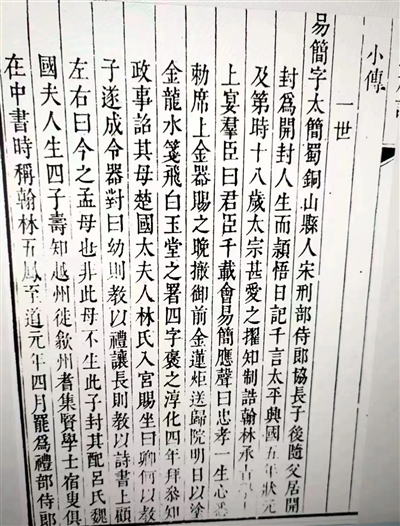 小傳
一世
易簡字太簡蜀銅山縣人宋刑部侍郎協長子後隨父居開
封爲開封人生而頴悟日記千言太平興國五年狀元
及第時十八歲太宗甚愛之擢知制誥翰林承旨
上宴羣臣曰君臣千載會易簡應聲曰忠孝一生心悉
勅席上金器賜之晚撤御前金蓮炬送歸院明日以塗
金龍水箋飛白玉堂之署四字褒之淳化四年拜叅知
政事詔其母楚國太夫人林氏入宮賜坐曰卿何以教
子遂成令器對曰幼則教以禮讓長則教以詩書上顧
左右曰今之孟母也非此母不生此子封其配呂氏魏
國夫人生四子壽知越州徙歙州耆集賢學士宿叟俱
在中書時稱翰林五鳳至道元年四月罷爲禮部侍郎